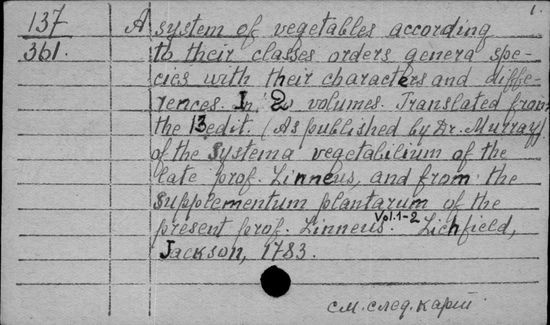 1.
137 A system of vegetables according
361. to their classes orders genera spe-
cies with their characters and diffe-
rences. In 2 volumes. Translated from
the 13 edit. (As published by Dr. Murray)
of the systema vegetabilium of the
late prof. Linneus, and from the
supplementum plantarum of the
present prof. Linneus. Vol. 1-2 Lichfield,
Jackson, 1783.
см. след. карт